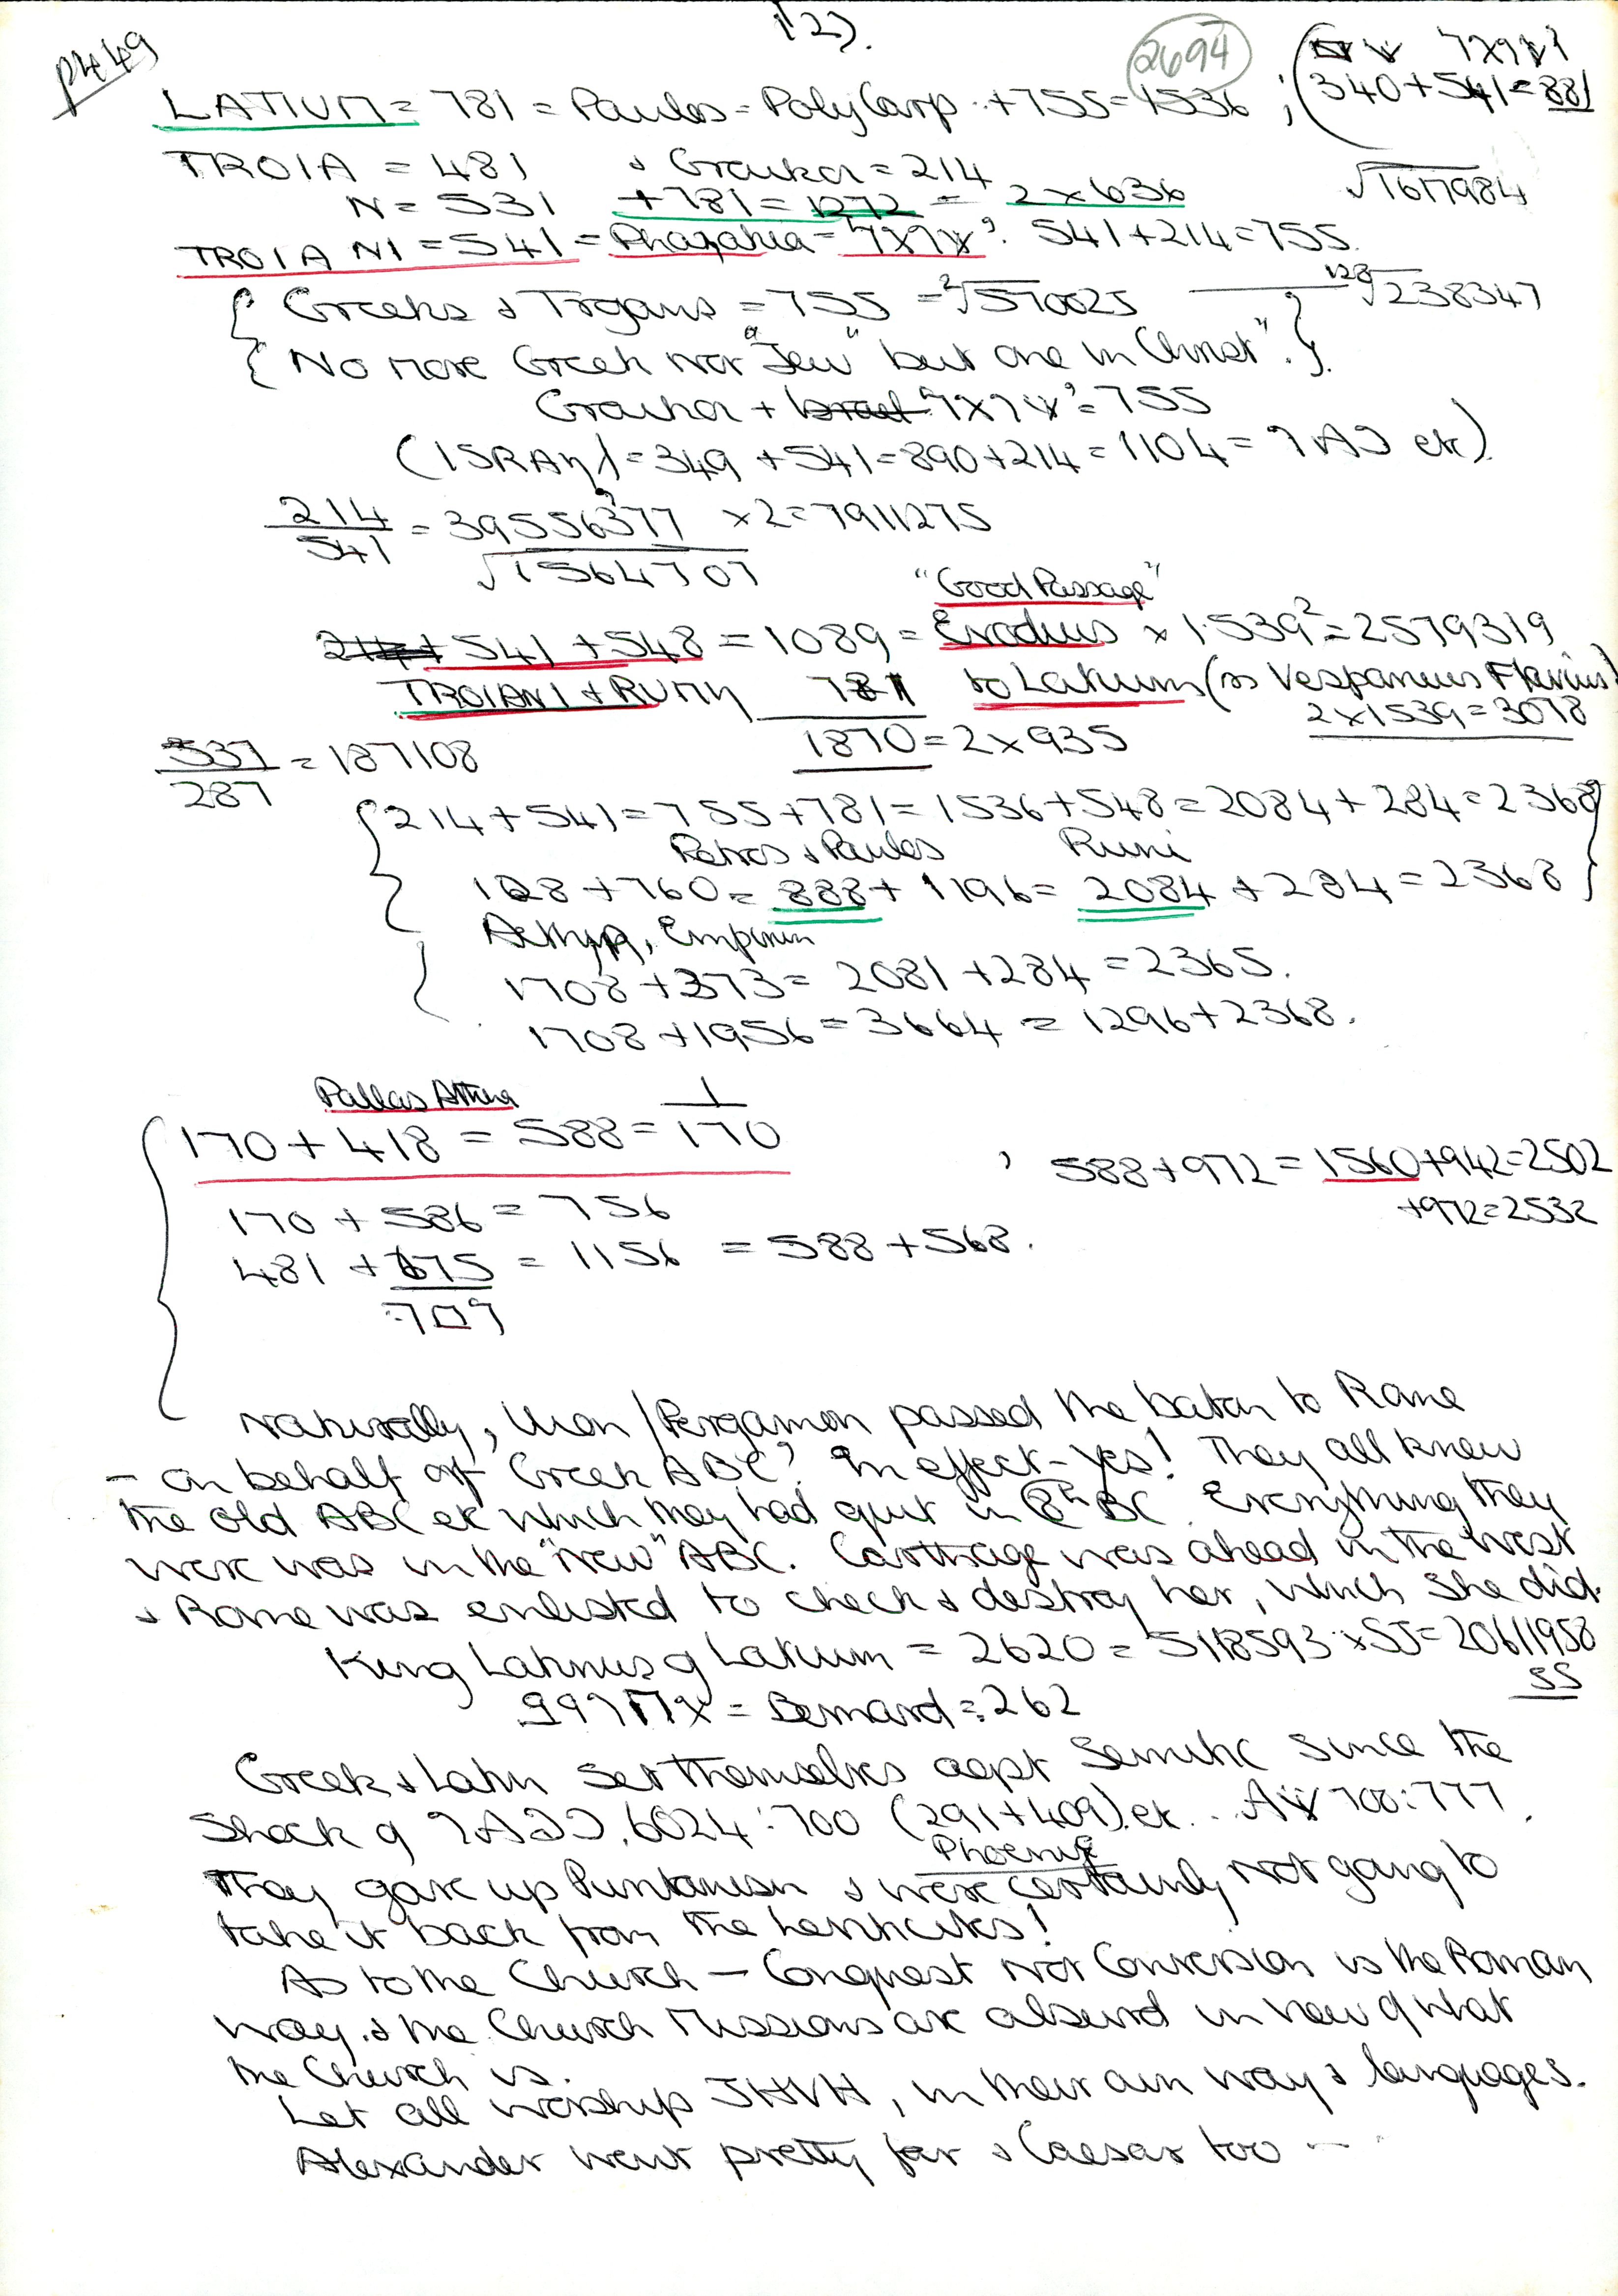 12).
p449
2694
7x9
LATIUM = 781 = Paulos = PolyCarp. +755=1536 ; (340+541=881
TROIA = 481 & Graikoi = 214 √1617984
N = 531 +781=1272 = 2x636
TROIANI = 541 = 541+214=755.
{ Greeks & Trojans = 755 = ²√570025 128√238347
{ No more Greek nor "Jew" but one in Christ". }
Graikoi + = 755
(ISRAηλ = 349 +541=890+214=1104= etc).
214/541 = 39556377 x2=7911275
√1564707
"Good Passage"
541 + 548 = 1089 = Exodius x 1.539²=2579319
TROIANI + RUMη 781 to Latium (as Vespaneus Flavius)
1870=2x935 2x1539=3078
537/287 = 187108
{214+541=755+781=1536+548=2084+284=2368}
Petros & Paulos Rumi
128+760= 888+1196= 2084 +284=2368
1708+373= 2081+284=2365.
1708+1956=3664 = 1296+2368.
Pallas Athena
170+418 = 588= 1/170
, 588+972=1560+942=2502
+972=2532
170 + 586 = 756
481 + 675 = 1156 = 588+568.
Naturally, Ilion/Pergamon passed the baton to Rome
- on behalf of Greek ABC? In effect - Yes! They all knew
the old ABC etc which they had quit in 8th BC. Everything they
were was in the "New" ABC. Carthage was ahead in the West
& Rome was enlisted to check & destroy her, which she did.
King Latinus of Latium = 2620 = 5118593 x55=20611958
55
= Bernard = 262
Greek & Latin set themselves apart Semitic since the
Shock of 6024:700 (291+409).etc. 700:777.
Phoenix
They gave up Puritanism & were certainly not going to
take it back from the
As to the Church - Conquest not Conversion is the Roman
way. & the Church Missions are absurd in view of what
the Church is.
Let all worship JHVH, in their own ways & languages.
Alexander went pretty far & Caesar too --